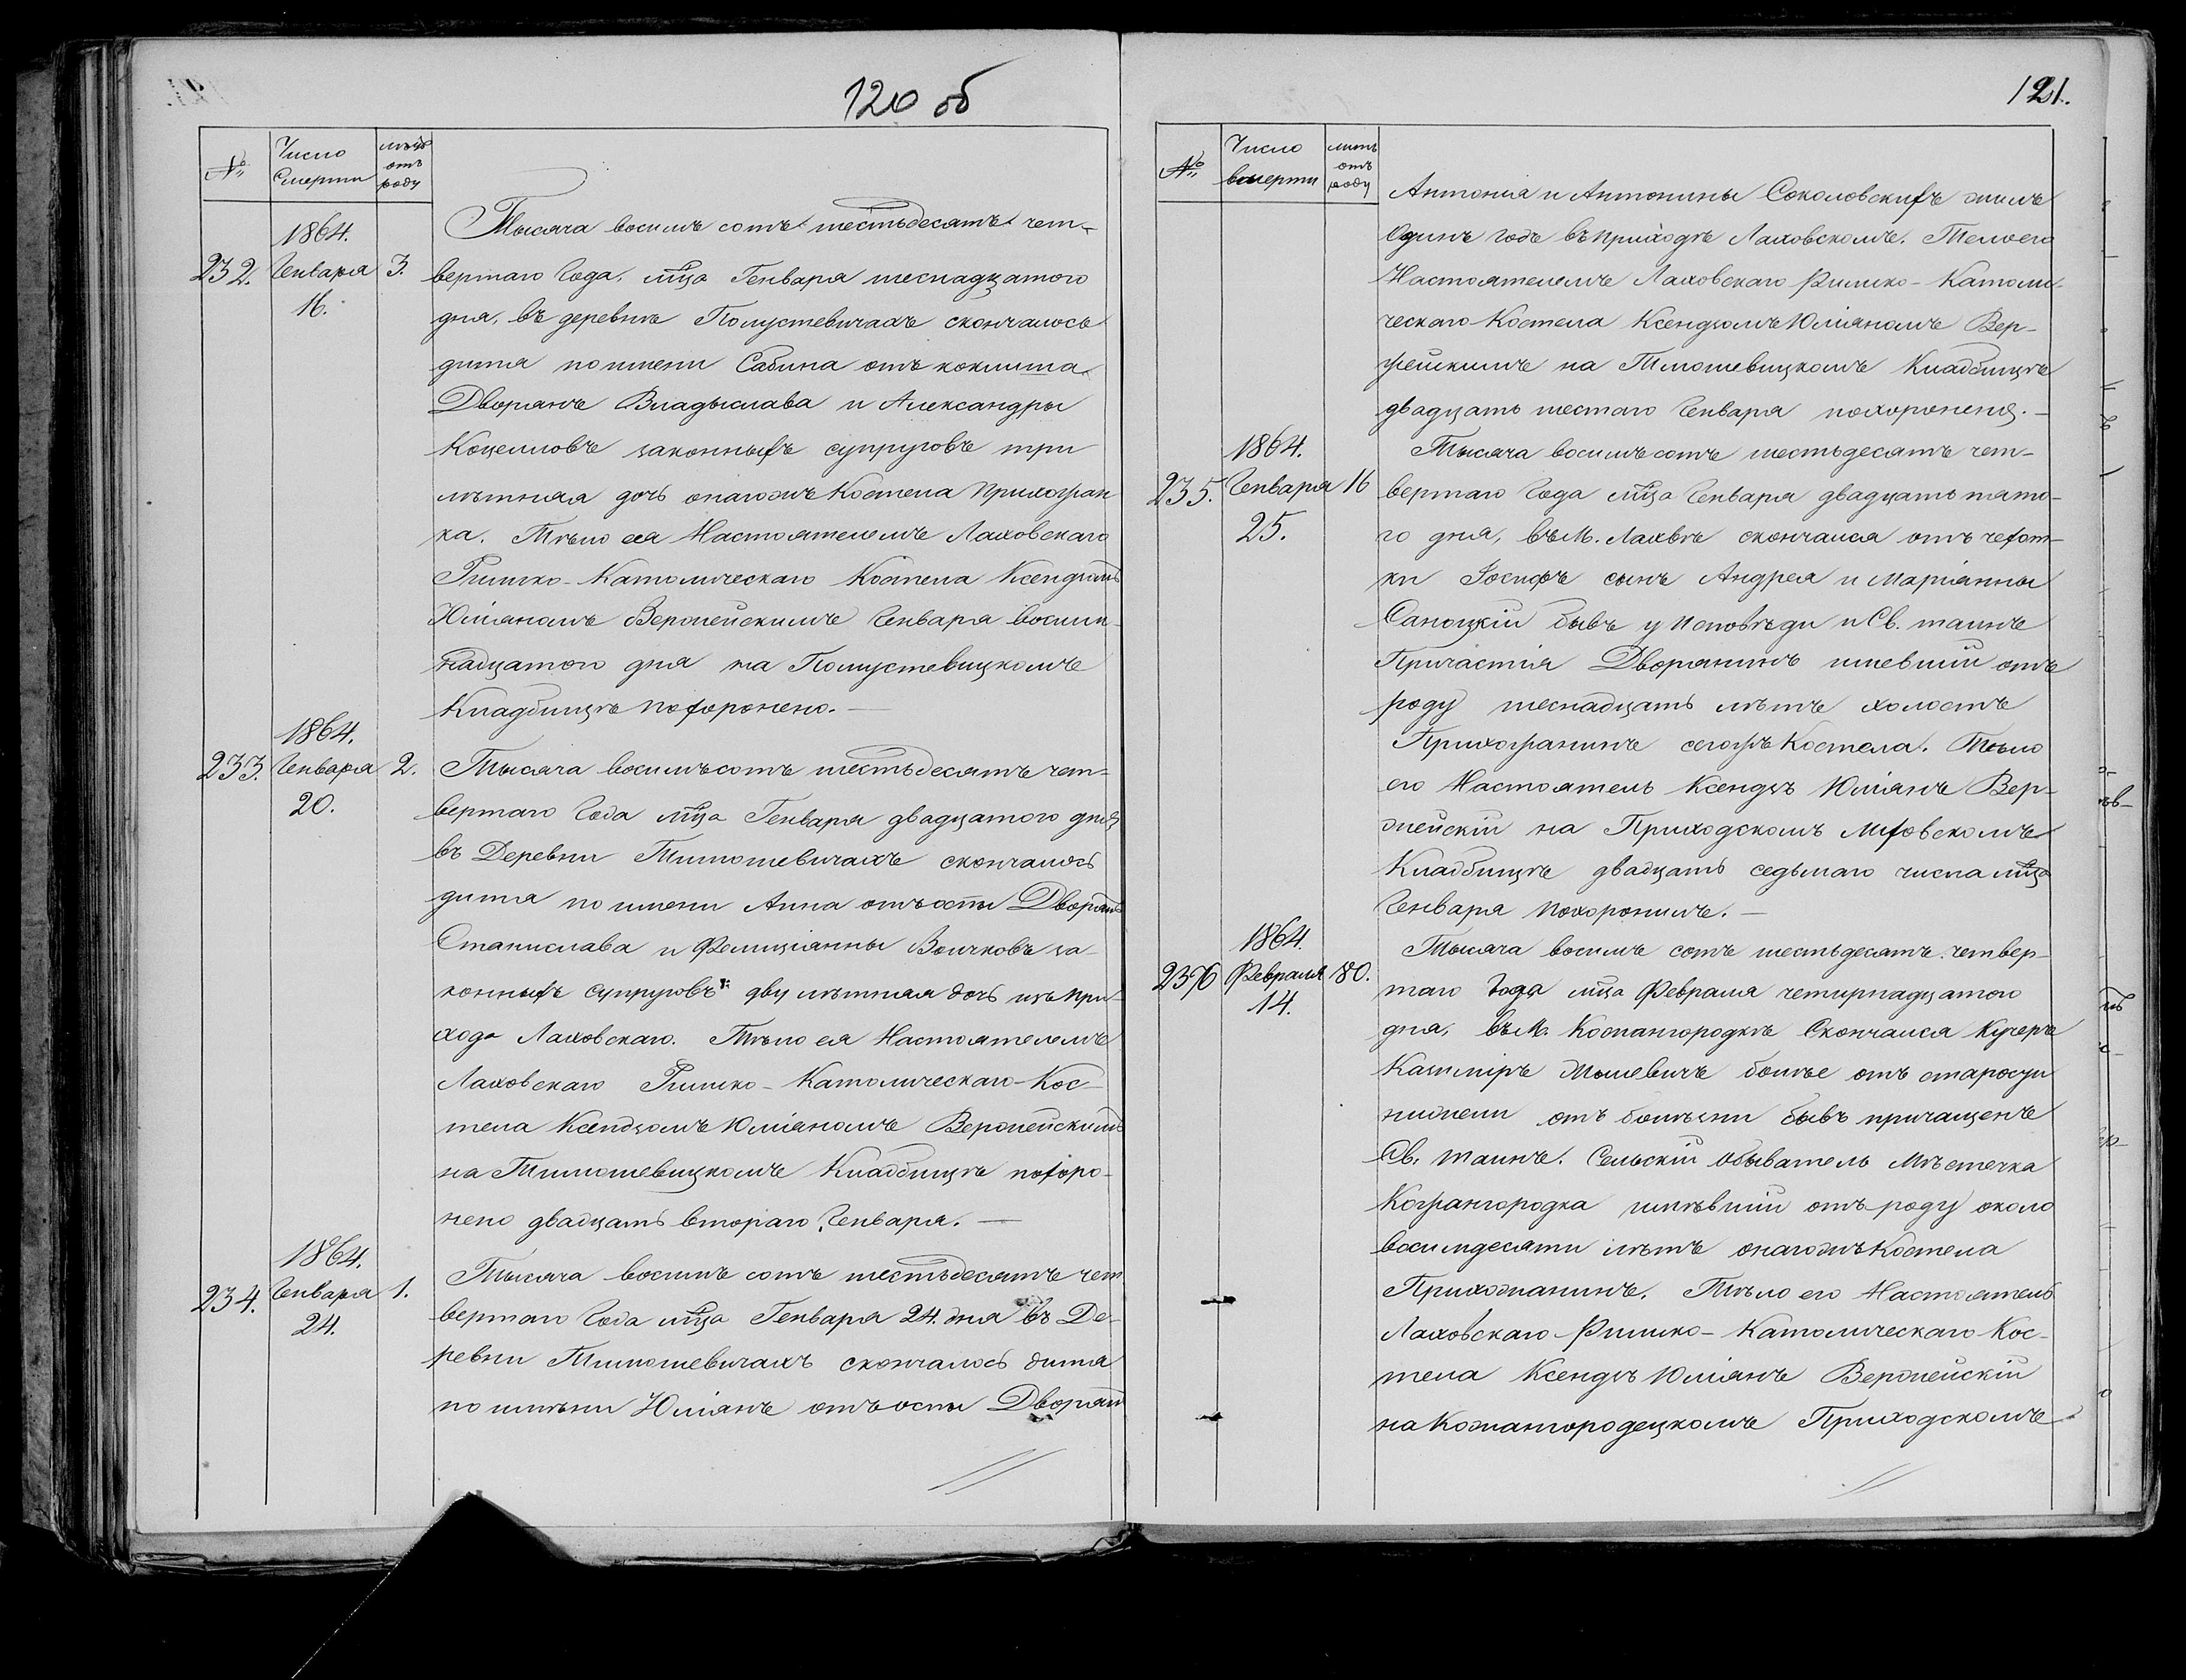 120 об
№
Число
Смерти
лѣтъ
отъ
роду
1864.
232. Генваря 3.
16.
Тысяча восимъ сотъ шестьдесятъ чет-
вертаго Года, мца Генваря шеснадцатого
дня, въ деревнѣ Полустевичахъ скончалось
дитя по имени Сабина отъ коклиша.
Дворянъ Владыслава и Александры
Коцелловъ законныхъ супруговъ три
лѣтняя дочь онагожъ Костела Прихожан
ка. Тѣло ея Настоятелемъ Лаховскаго
Римско-Католическаго Костела Ксендзомъ
Юліаномъ Вержейскимъ Генваря восим-
надцатого дня на Полустевицкомъ
Кладбищѣ похоронено. —
1864.
233. Генваря 2.
20.
Тысяча восимъ сотъ шестьдесятъ чет-
вертаго Года мца Генваря двадцатого дня
въ Деревни Тимошевичахъ скончалось
дитя по имени Анна отъ оспы Дворянъ
Станислава и Фелиціанны Волчковъ за-
конныхъ супруговъ дву лѣтняя дочь изъ при-
хода Лаховскаго. Тѣло ея Настоятелемъ
Лаховскаго Римско-Католическаго-Кос-
тела Ксендзомъ Юліаномъ Вержейскимъ
на Тимошевицкомъ Кладбищѣ похоро-
нено двадцать втораго Генваря. —
1864.
234. Генваря 1.
24.
Тысяча восимъ сотъ шестьдесятъ чет
вертаго Года мца Генваря 24. дня въ Де-
ревни Тимошевичахъ скончалось дитя
по имѣни Юліанъ отъ оспы Дворянъ
121.
№
Число
Смерти
лѣтъ
отъ
роду
Антонія и Антонины Соколовскихъ жилъ
Одинъ годъ въ приходѣ Лаховскомъ. Тело его
Настоятелемъ Лаховскаго Римско-Католи-
ческаго Костела Ксендзомъ Юліаномъ Вер-
жейскимъ на Тимошевицкомъ Кладбищѣ
двадцать шестаго Генваря похоронено. —
1864.
235. Генваря 16
25.
Тысяча восимъ сотъ шестьдесятъ чет-
вертаго Года мца Генваря двадцать пято-
го дня, въ М. Лахвѣ скончался отъ чехот-
ки Іосифъ сынъ Андрея и Маріанны
Саноцкій бывъ у Исповѣди и Св. таинъ
Причастія Дворянинъ имевшій отъ
роду шеснадцать лѣтъ холостъ
Прихожанинъ сегожъ Костела. Тѣло
его Настоятель Ксендзъ Юліанъ Вер-
жейскій на Приходскомъ Лаховскомъ
Кладбищѣ двадцать седьмаго числа мца
Генваря похоронилъ. —
1864.
236 Февраля 80.
14.
Тысяча восимъ сотъ шестьдесятъ четвер-
таго Года мца Февраля четирнадцатого
дня, въ М. Кожангородкѣ Скончался Кучеръ
Казиміръ болѣе отъ старосци
нижели отъ болѣзни бывъ причащенъ
Св. таинъ. Сельскій обыватель Мѣстечка
Кожангородка имѣвшій отъ роду около
восимдесяти лѣтъ онагожъ Костела
Прихожанинъ. Тѣло его Настоятель
Лаховскаго-Римско-Католическаго Кос-
тела Ксендзъ Юліанъ Вержейскій
на Кожангородецкомъ Приходскомъ